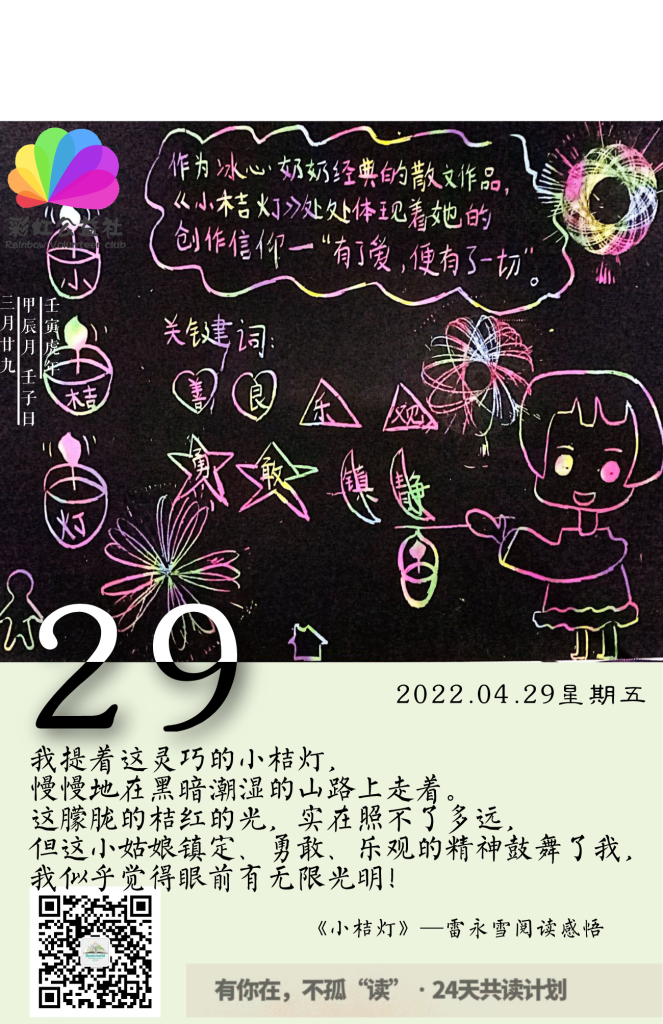 作为冰心奶奶经典的散文作品,
《小桔灯》处处体现着她的
创作信仰—“有了爱,便有了一切”。
彩虹公益社
Rainbow Volunteer club
小
桔
灯
壬寅虎年
甲辰月 壬子日
三月廿九
关键建词:
善 良 乐 观
勇 敢 镇 静
29
2022.04.29星期五
我提着这灵巧的小桔灯,
慢慢地在黑暗潮湿的山路上走着。
这朦胧的桔红的光, 实在照不了多远,
但这小姑娘镇定、勇敢、乐观的精神鼓舞了我,
我似乎觉得眼前有无限光明!
《小桔灯》—雷永雪阅读感悟
有你在，不孤“读” · 24天共读计划